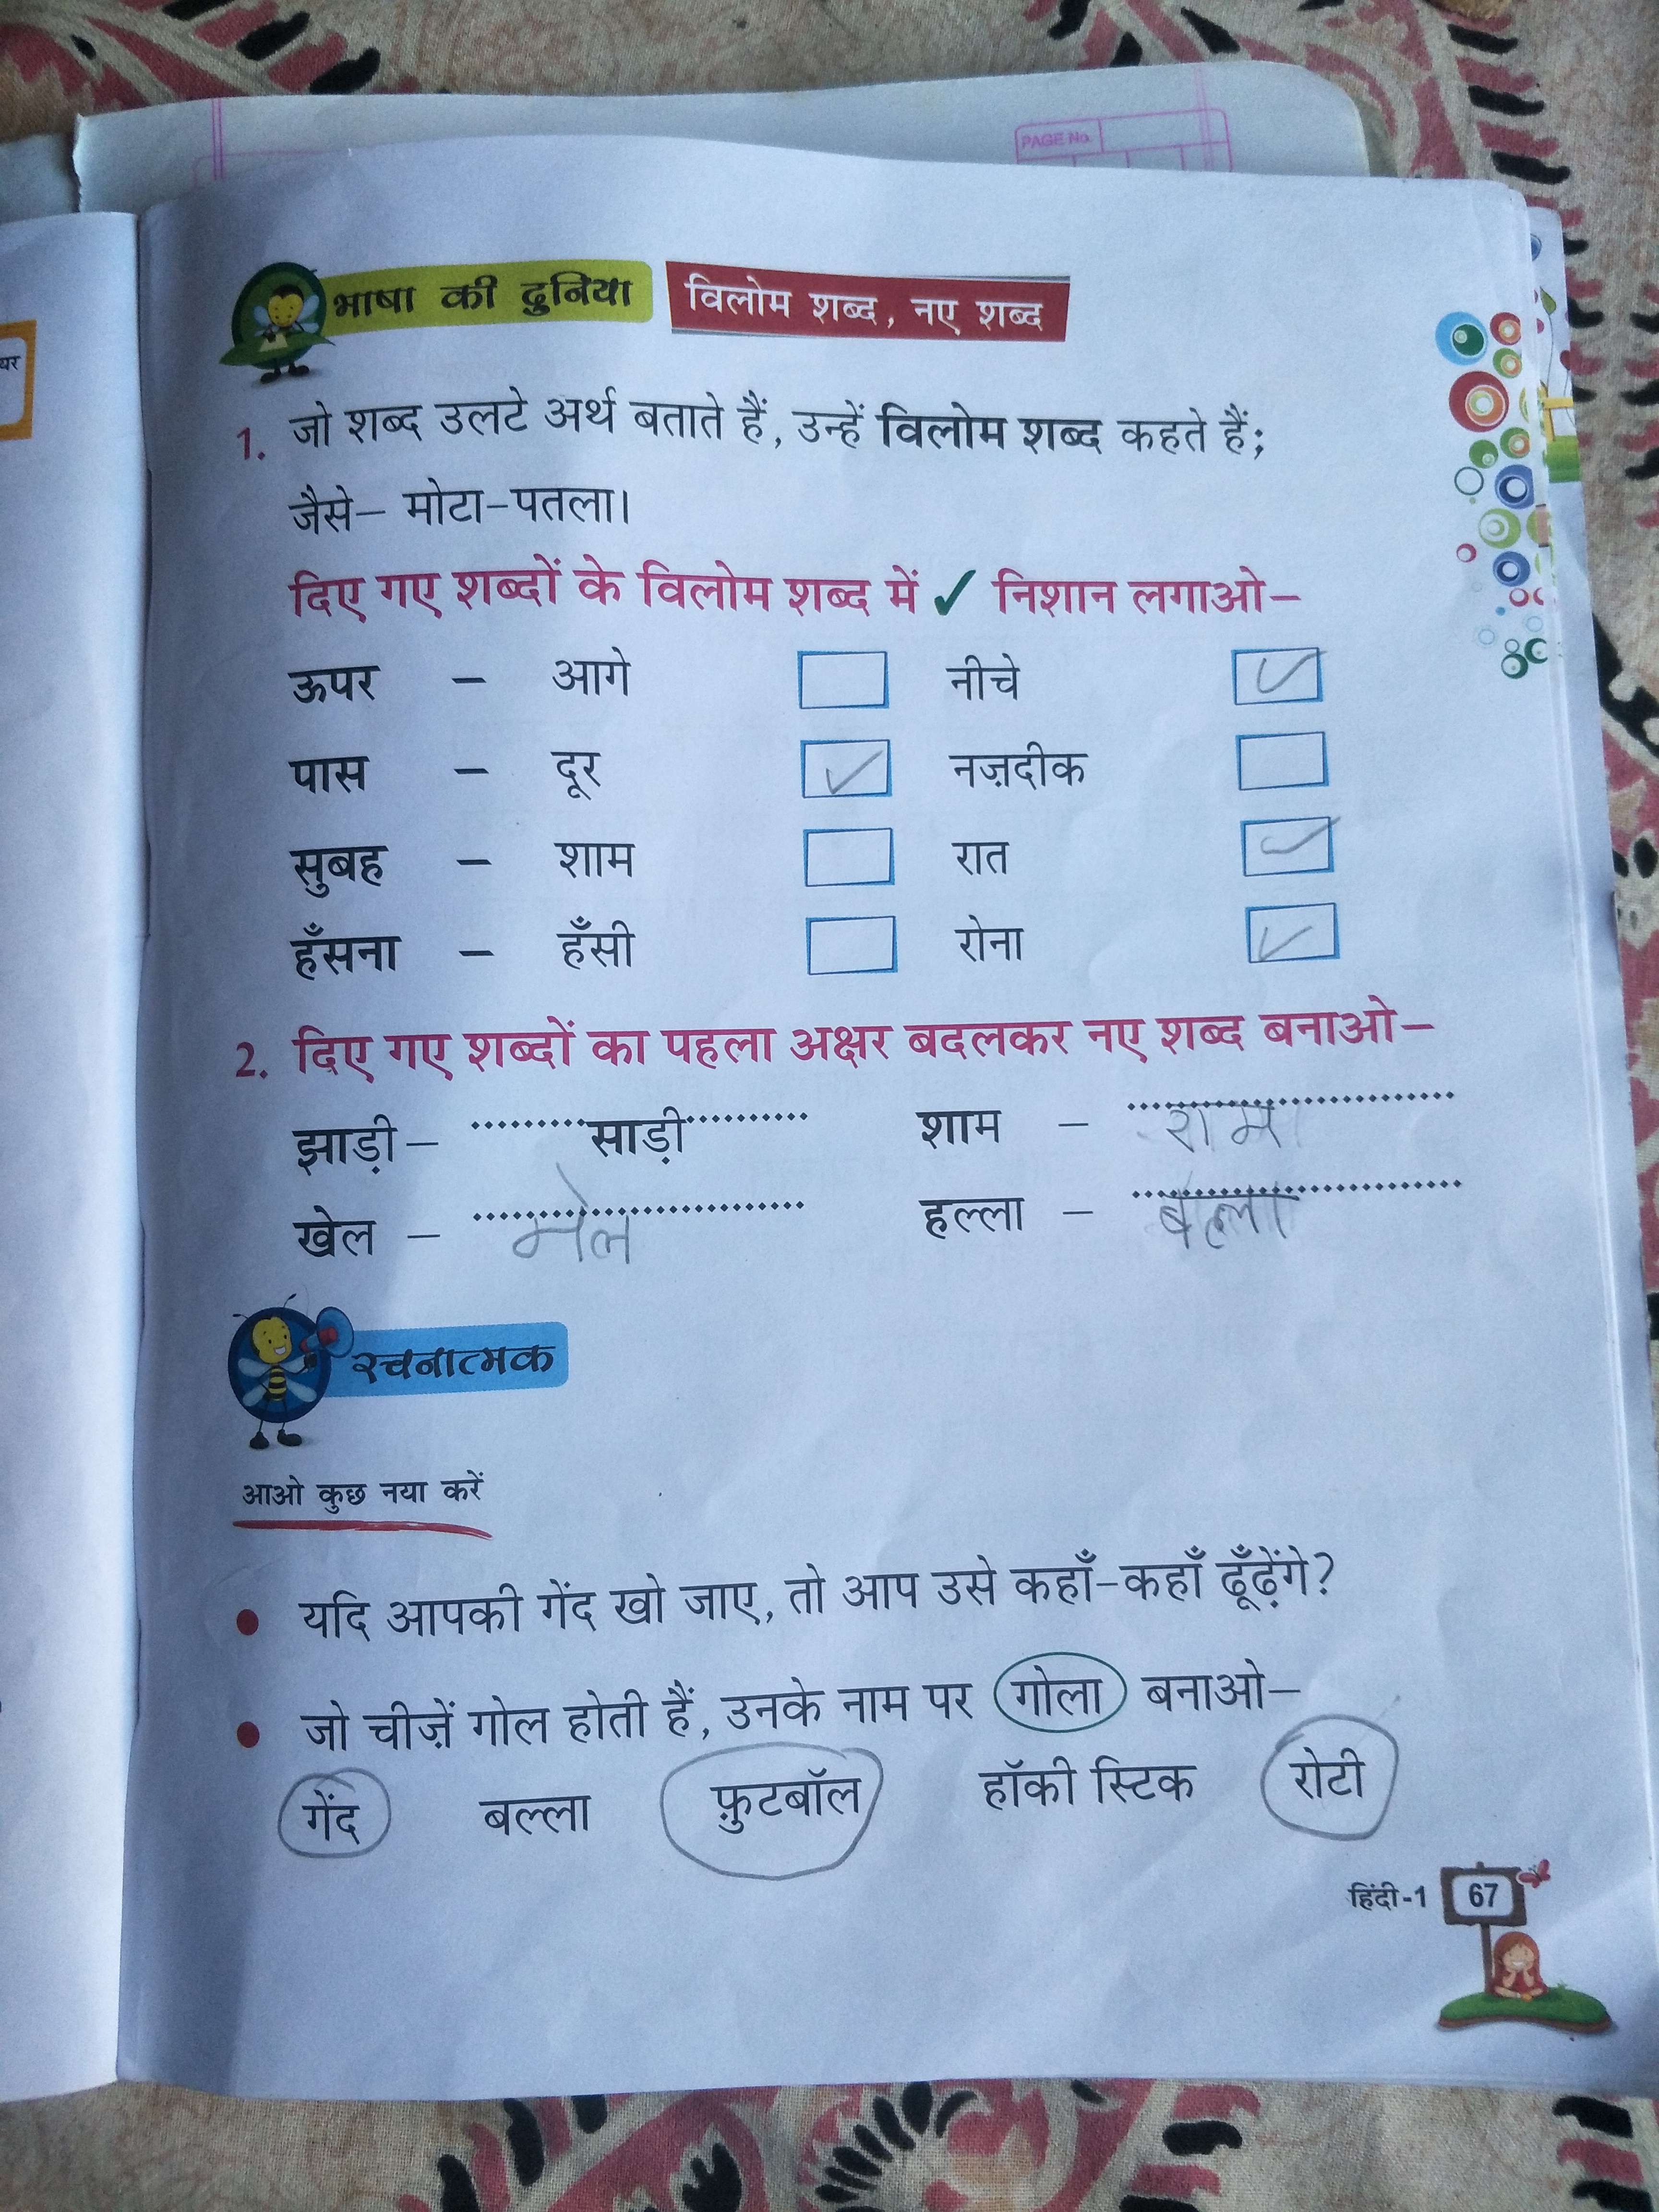 PAGE No.
यर
भाषा की दुनिया विलोम शब्द, नए शब्द
1. जो शब्द उलटे अर्थ बताते हैं, उन्हें विलोम शब्द कहते हैं;
जैसे– मोटा-पतला।
दिए गए शब्दों के विलोम शब्द में ✓ निशान लगाओ–
ऊपर – आगे नीचे ✓
पास – दूर ✓ नज़दीक
सुबह – शाम रात ✓
हँसना – हँसी रोना ✓
2. दिए गए शब्दों का पहला अक्षर बदलकर नए शब्द बनाओ–
झाड़ी– साड़ी शाम – राम
खेल – मेल हल्ला – बल्ला
रचनात्मक
आओ कुछ नया करें
• यदि आपकी गेंद खो जाए, तो आप उसे कहाँ-कहाँ ढूँढ़ेंगे?
• जो चीज़ें गोल होती हैं, उनके नाम पर गोला बनाओ–
गेंद बल्ला फ़ुटबॉल हॉकी स्टिक रोटी
हिंदी-1 67